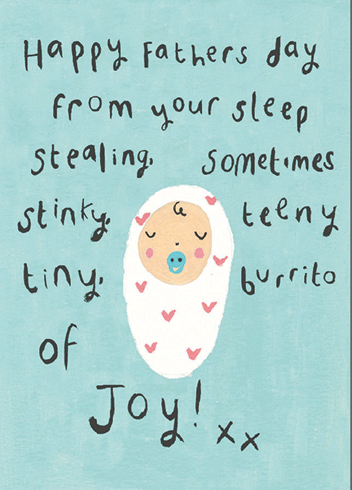 Happy Fathers day
from your sleep
stealing, sometimes
stinky, teeny
tiny, burrito
of
Joy! xx